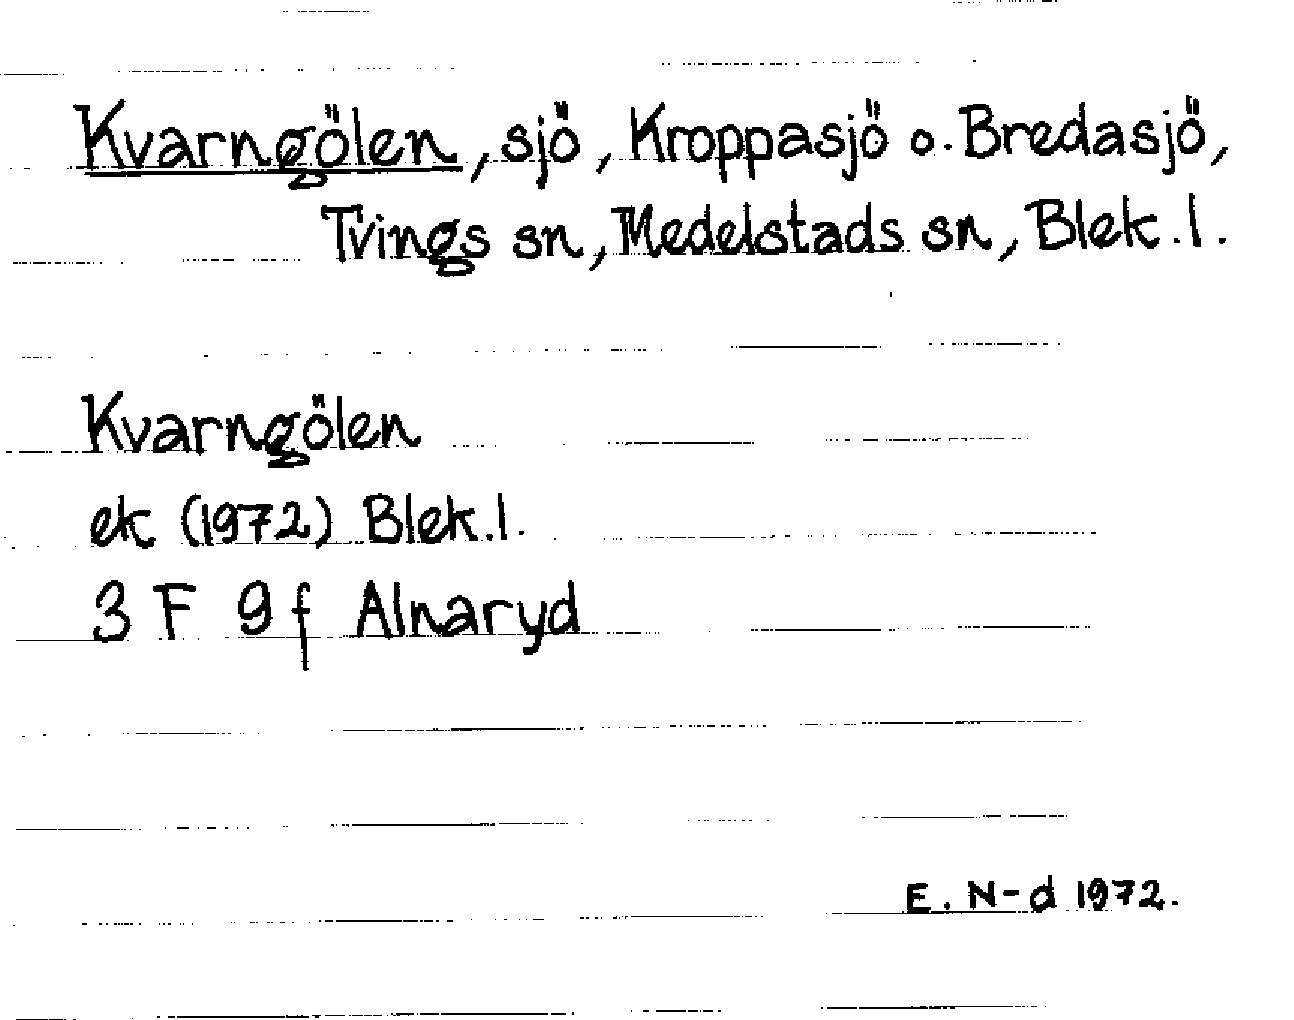 Kvarngölen, sjö, Kroppasjö o. Bredasjö,
Tvings sn, Medelstads sn, Blek.l.
Kvarngölen
ek (1972) Blek.l.
3 F 9 f Alnaryd
E. N-d 1972.